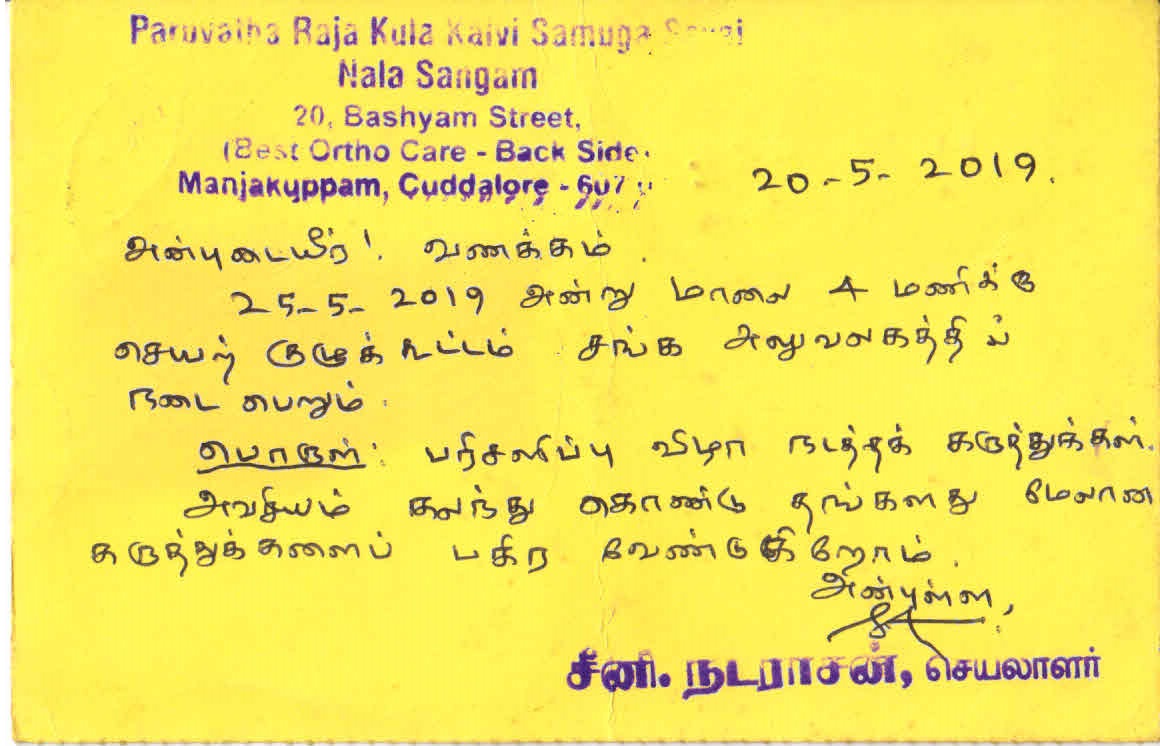 Paruvatha Raja Kula Kalvi Samuga
Nala Sangam
20, Bashyam Street,
(Best Ortho Care - Back Side
Manjakuppam, Cuddalore - 607
20-5-2019.
அன்புடையீர்! வணக்கம்.
25-5-2019 அன்று மாலை 4 மணிக்கு
செயற் குழுக் கூட்டம் சங்க அலுவலகத்தில்
நடை பெறும்.
பொருள்: பரிசளிப்பு விழா நடத்தக் கருத்துக்கள்.
அவசியம் கலந்து கொண்டு தங்களது மேலான
கருத்துக்களைப் பகிர வேண்டுகிறோம்.
அன்புள்ள,
சீனி. நடராசன், செயலாளர்